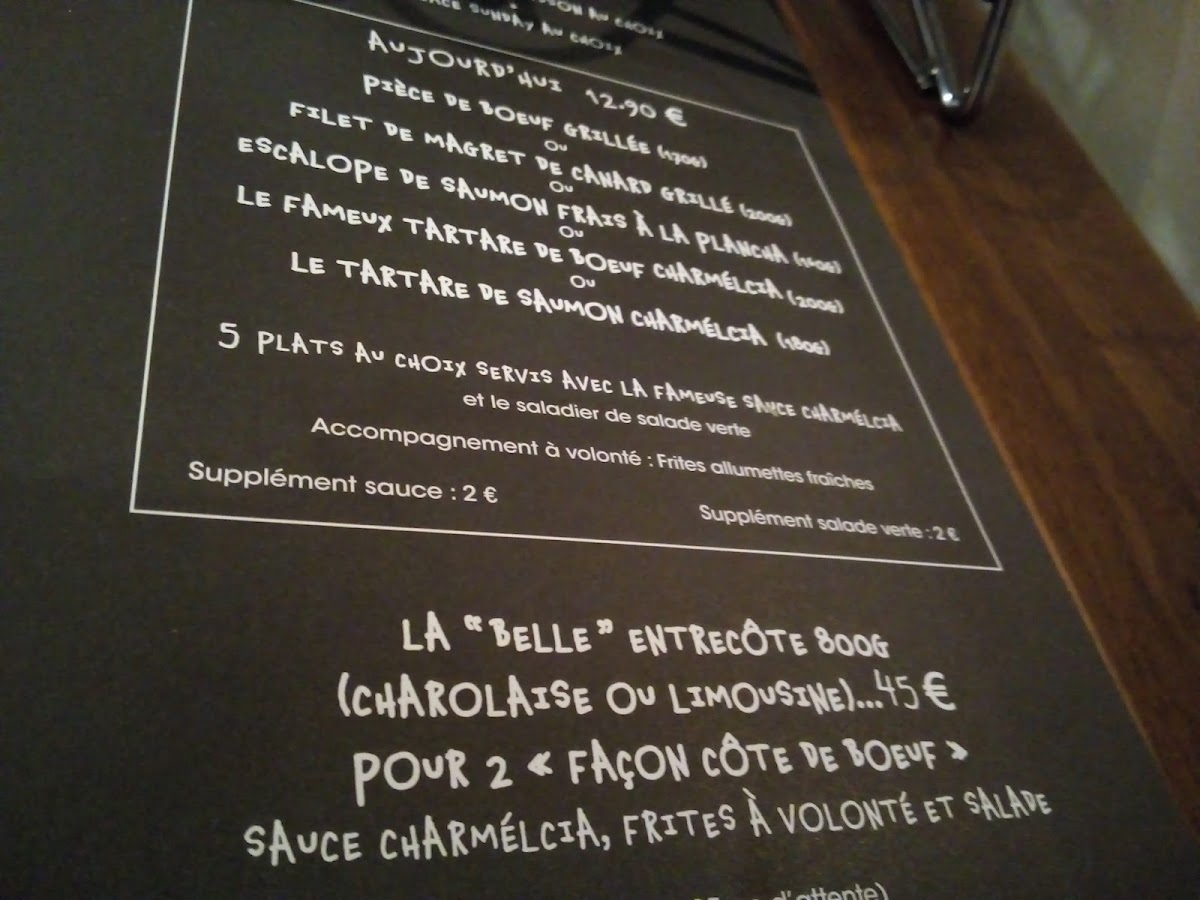 AU CHOIX
SUNDAY AU CHOIX
AUJOURD'HUI 12.90 €
PIÈCE DE BOEUF GRILLÉE (170G)
OU
FILET DE MAGRET DE CANARD GRILLÉ (200G)
OU
ESCALOPE DE SAUMON FRAIS À LA PLANCHA
OU
LE FAMEUX TARTARE DE BOEUF CHARMÉLCIA (200G)
OU
LE TARTARE DE SAUMON CHARMÉLCIA (180G)
5 PLATS AU CHOIX SERVIS AVEC LA FAMEUSE SAUCE CHARMÉLCIA
et le saladier de salade verte
Accompagnement à volonté : Frites allumettes fraîches
Supplément sauce : 2 €
Supplément salade verte : 2 €
LA "BELLE" ENTRECÔTE 800G
(CHAROLAISE OU LIMOUSINE)...45 €
POUR 2 « FAÇON CÔTE DE BOEUF »
SAUCE CHARMÉLCIA, FRITES À VOLONTÉ ET SALADE
d'attente)